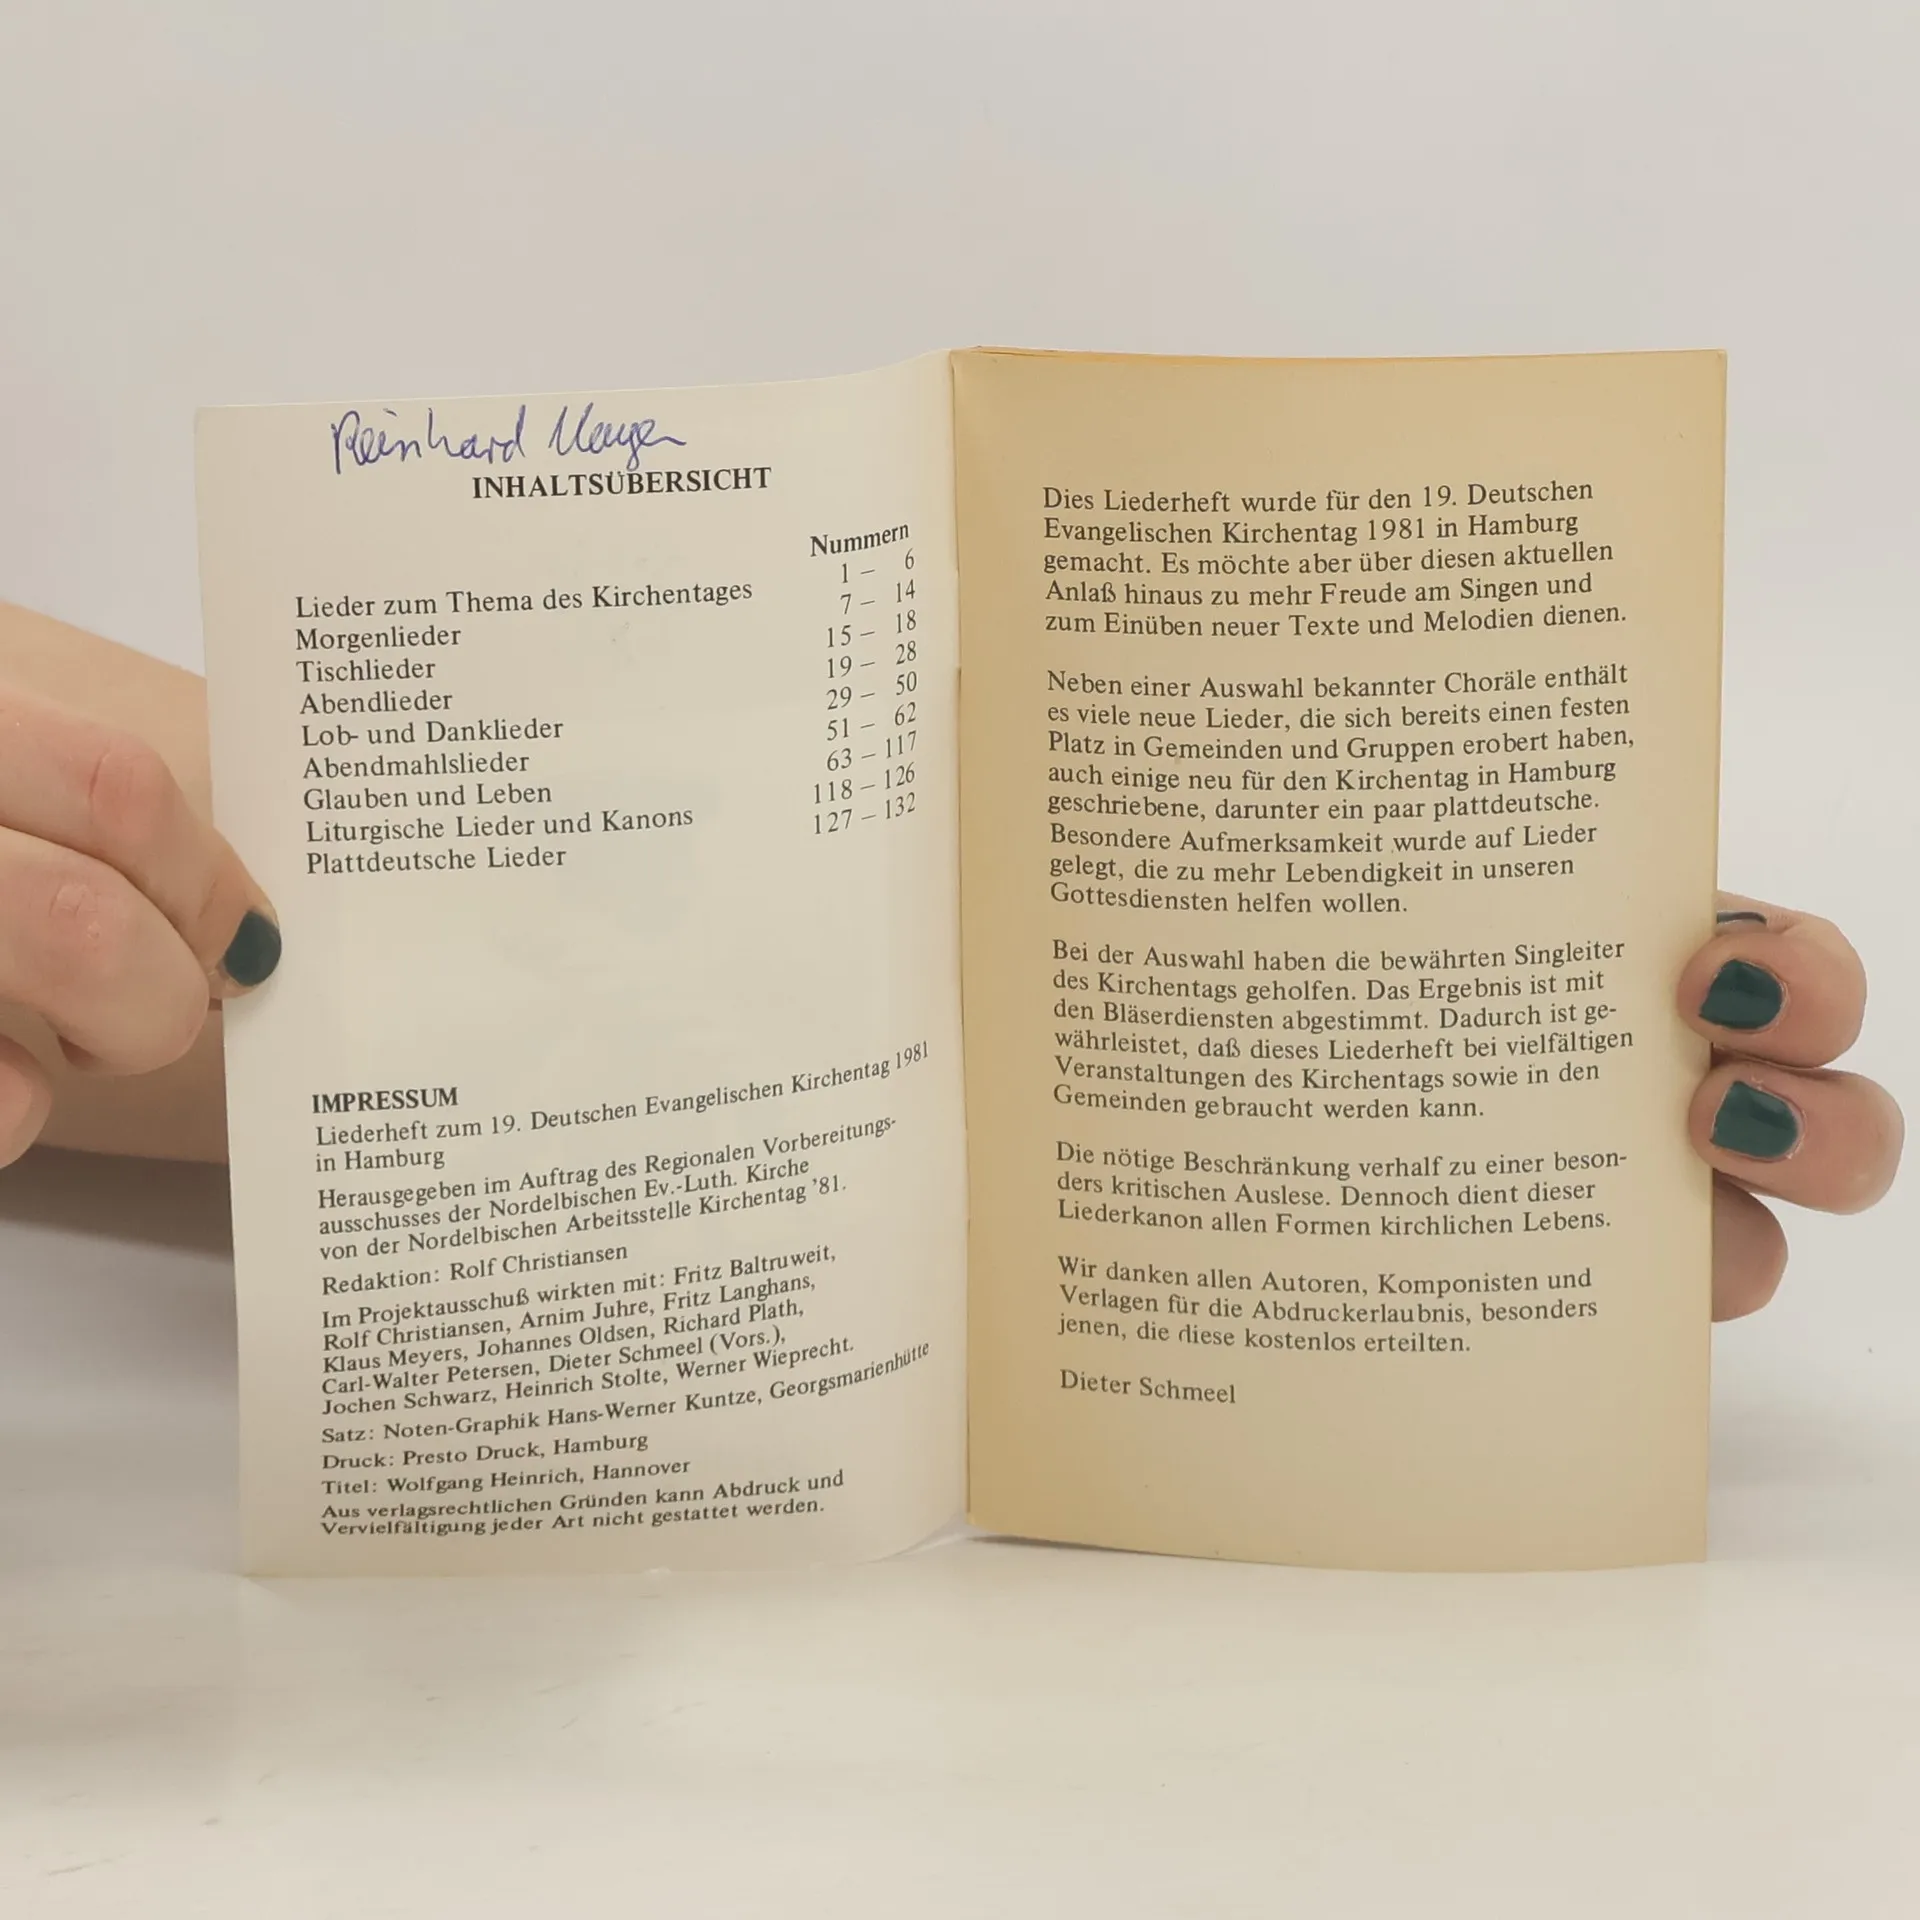 Reinhard
INHALTSÜBERSICHT
Nummern
Lieder zum Thema des Kirchentages 1 – 6
Morgenlieder 7 – 14
Tischlieder 15 – 18
Abendlieder 19 – 28
Lob- und Danklieder 29 – 50
Abendmahlslieder 51 – 62
Glauben und Leben 63 – 117
Liturgische Lieder und Kanons 118 – 126
Plattdeutsche Lieder 127 – 132
IMPRESSUM
Liederheft zum 19. Deutschen Evangelischen Kirchentag 1981
in Hamburg
Herausgegeben im Auftrag des Regionalen Vorbereitungs-
ausschusses der Nordelbischen Ev.-Luth. Kirche
von der Nordelbischen Arbeitsstelle Kirchentag '81.
Redaktion: Rolf Christiansen
Im Projektausschuß wirkten mit: Fritz Baltruweit,
Rolf Christiansen, Arnim Juhre, Fritz Langhans,
Klaus Meyers, Johannes Oldsen, Richard Plath,
Carl-Walter Petersen, Dieter Schmeel (Vors.),
Jochen Schwarz, Heinrich Stolte, Werner Wieprecht.
Satz: Noten-Graphik Hans-Werner Kuntze, Georgsmarienhütte
Druck: Presto Druck, Hamburg
Titel: Wolfgang Heinrich, Hannover
Aus verlagsrechtlichen Gründen kann Abdruck und
Vervielfältigung jeder Art nicht gestattet werden.
Dies Liederheft wurde für den 19. Deutschen
Evangelischen Kirchentag 1981 in Hamburg
gemacht. Es möchte aber über diesen aktuellen
Anlaß hinaus zu mehr Freude am Singen und
zum Einüben neuer Texte und Melodien dienen.
Neben einer Auswahl bekannter Choräle enthält
es viele neue Lieder, die sich bereits einen festen
Platz in Gemeinden und Gruppen erobert haben,
auch einige neu für den Kirchentag in Hamburg
geschriebene, darunter ein paar plattdeutsche.
Besondere Aufmerksamkeit wurde auf Lieder
gelegt, die zu mehr Lebendigkeit in unseren
Gottesdiensten helfen wollen.
Bei der Auswahl haben die bewährten Singleiter
des Kirchentags geholfen. Das Ergebnis ist mit
den Bläserdiensten abgestimmt. Dadurch ist ge-
währleistet, daß dieses Liederheft bei vielfältigen
Veranstaltungen des Kirchentags sowie in den
Gemeinden gebraucht werden kann.
Die nötige Beschränkung verhalf zu einer beson-
ders kritischen Auslese. Dennoch dient dieser
Liederkanon allen Formen kirchlichen Lebens.
Wir danken allen Autoren, Komponisten und
Verlagen für die Abdruckerlaubnis, besonders
jenen, die diese kostenlos erteilten.
Dieter Schmeel